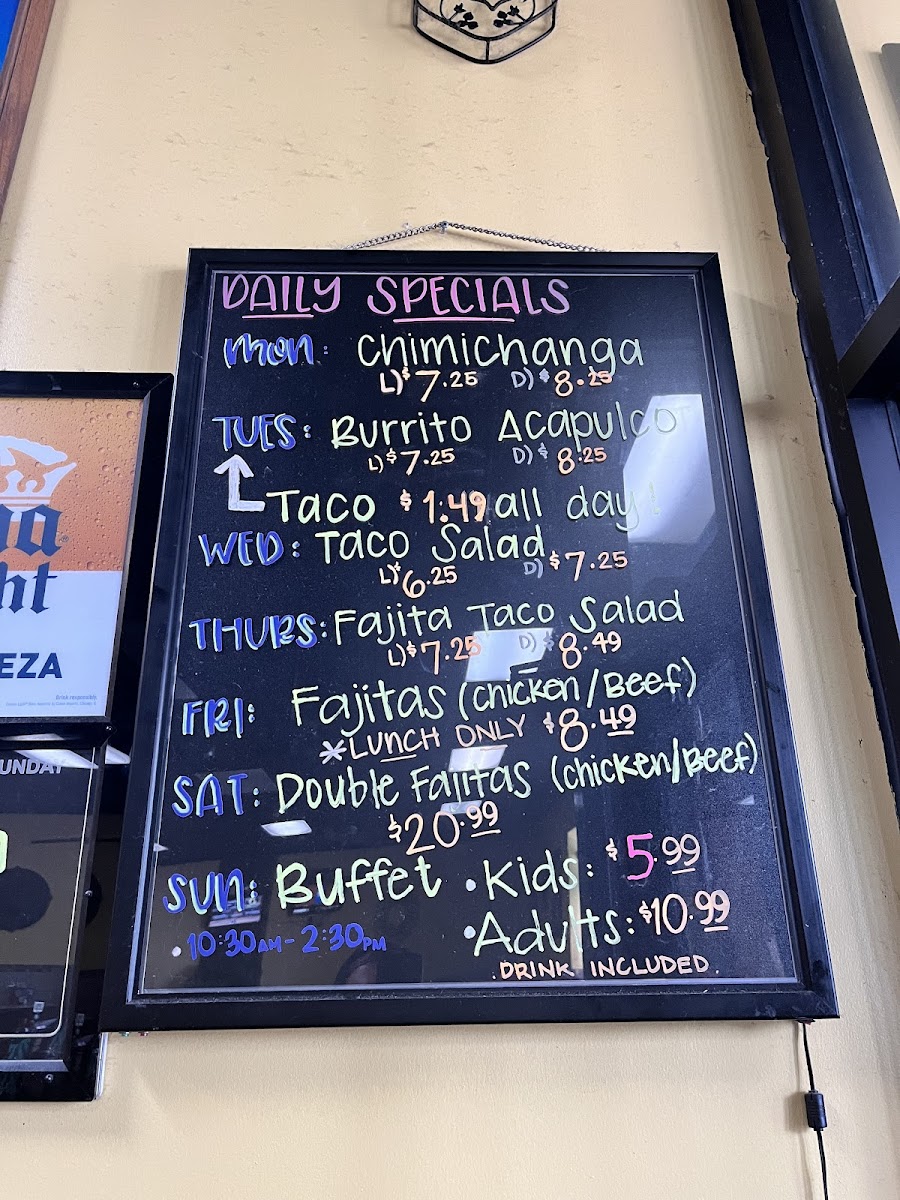 DAILY SPECIALS
Mon: Chimichanga
L) $7.25 D) $8.25
TUES: Burrito Acapulco
L) $7.25 D) $8.25
Taco $1.49 all day!
WED: Taco Salad
L) $6.25 D) $7.25
THURS: Fajita Taco Salad
L) $7.25 D) $8.49
FRI: Fajitas (Chicken/Beef)
*LUNCH ONLY $8.49
SAT: Double Fajitas (chicken/Beef)
$20.99
SUN: Buffet • Kids: $5.99
• 10:30AM - 2:30PM • Adults: $10.99
. DRINK INCLUDED.
ht
EZA
Drink responsibly.
UNDAY